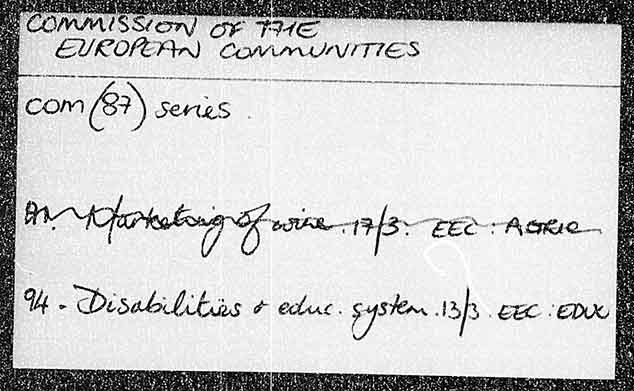 COMMISSION OF THE
EUROPEAN COMMUNITIES
COM (87) series
Marketing of wine. 17/3. EEC: AGRIC
94 - Disabilities & educ. system. 13/3. EEC: EDUC